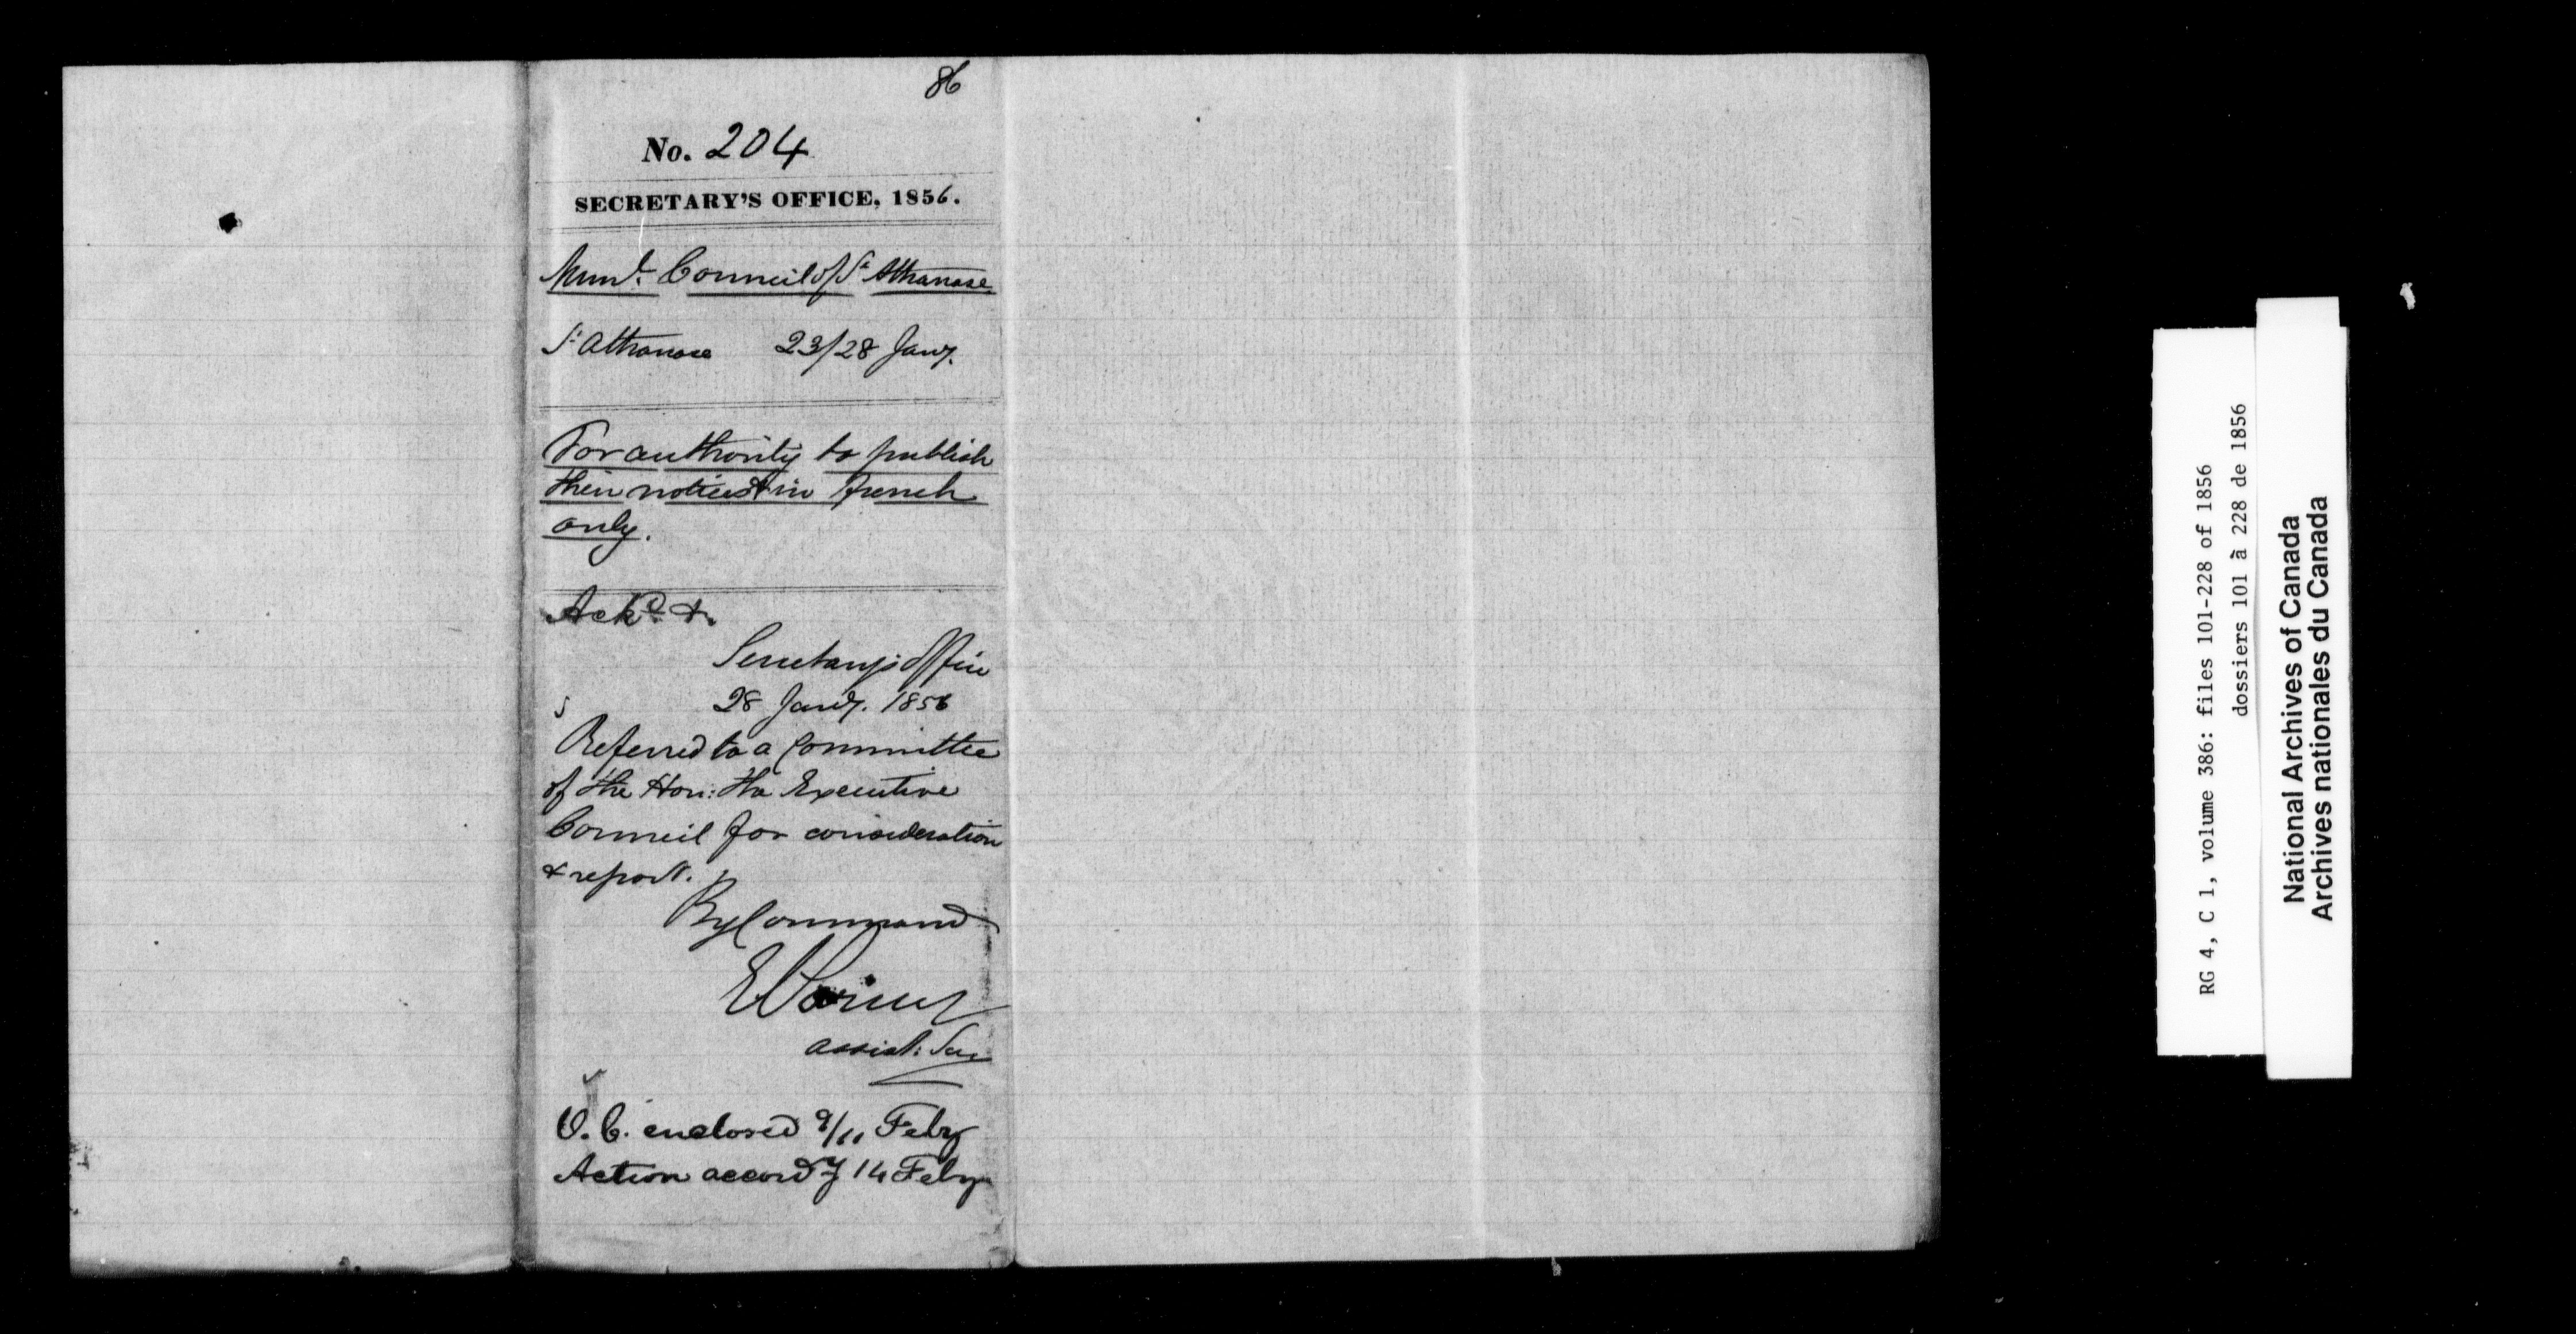 86
No. 204
SECRETARY'S OFFICE, 1856.
Munl. Council of St Athanase
St Athanase 23/28 Jany.
For authority to publish
their notices in French
only.
Ackd. &.
Secretary's Office
28 Jany. 1856
Referred to a Committee
of the Hon: the Executive
Council for consideration
& report.
By Command
E Parent
assist: Secy
O. C. enclosed 9/11 Feby
Action accordy 14 Feby
RG 4, C 1, volume 386: files 101-228 of 1856
dossiers 101 à 228 de 1856
National Archives of Canada
Archives nationales du Canada